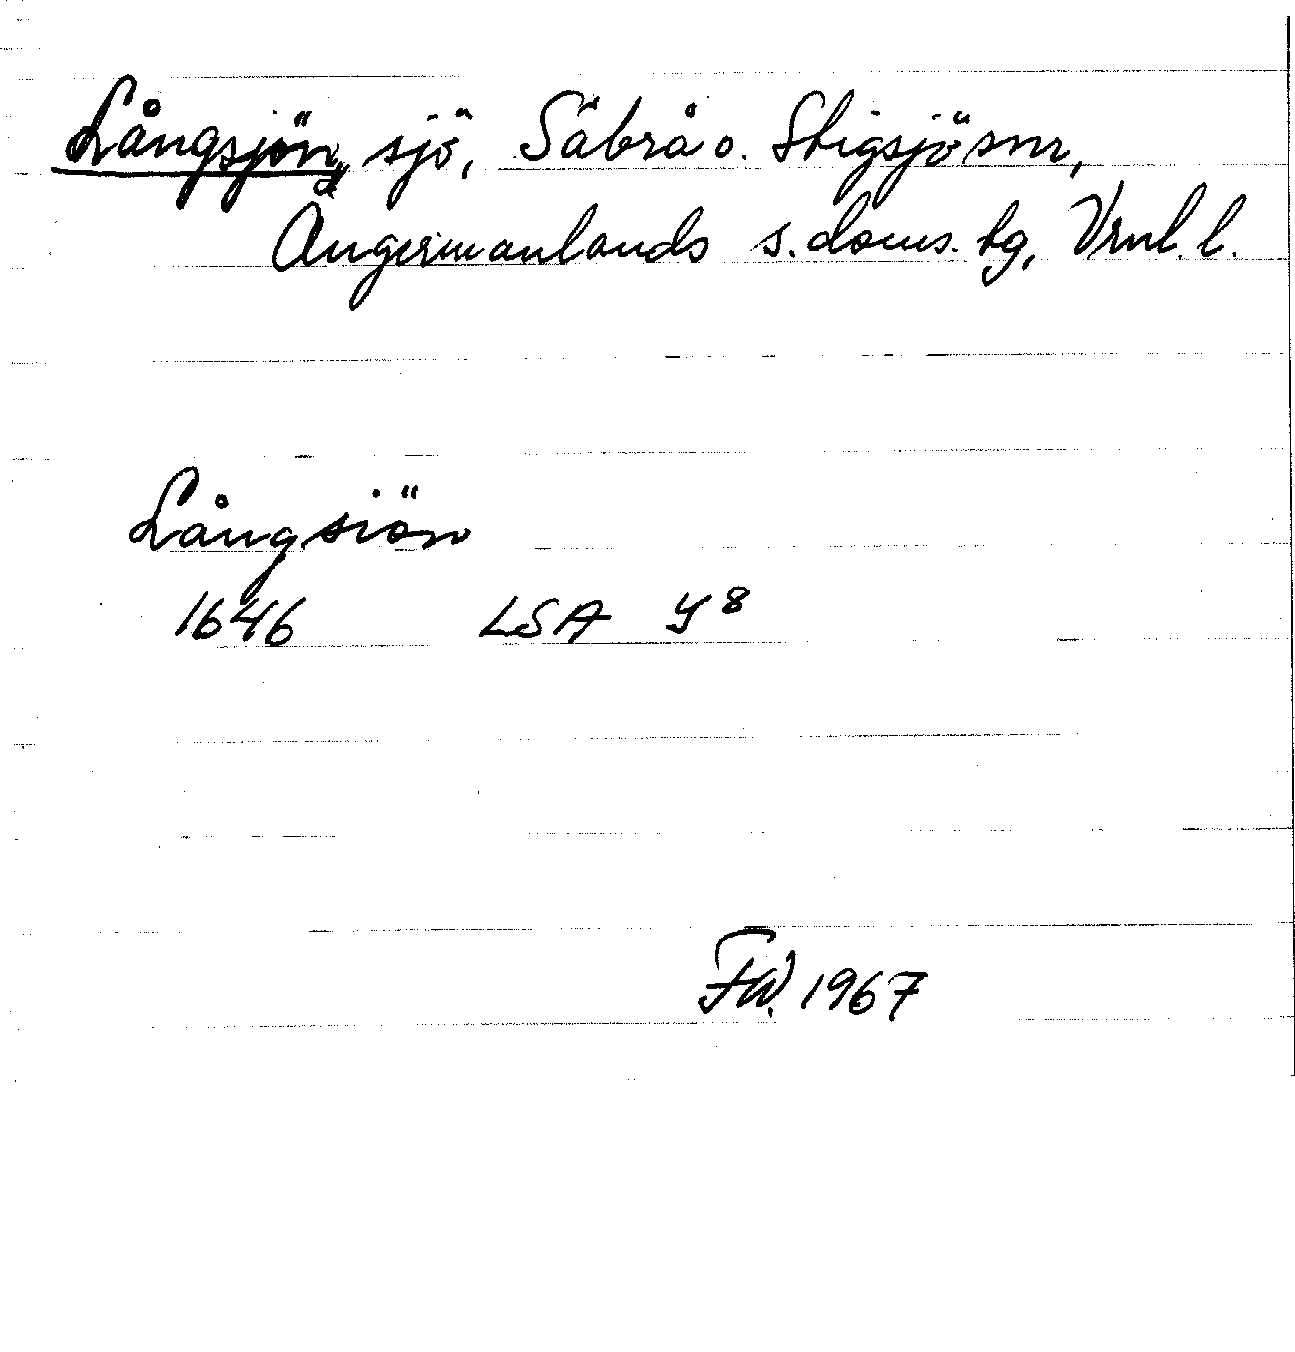 Långsjön, sjö, Säbrå o. Stigsjö snr,
Ångermanlands s. doms. tg, Vrnl. l.
Långsiön
1646 LSA Y 8
FW. 1967